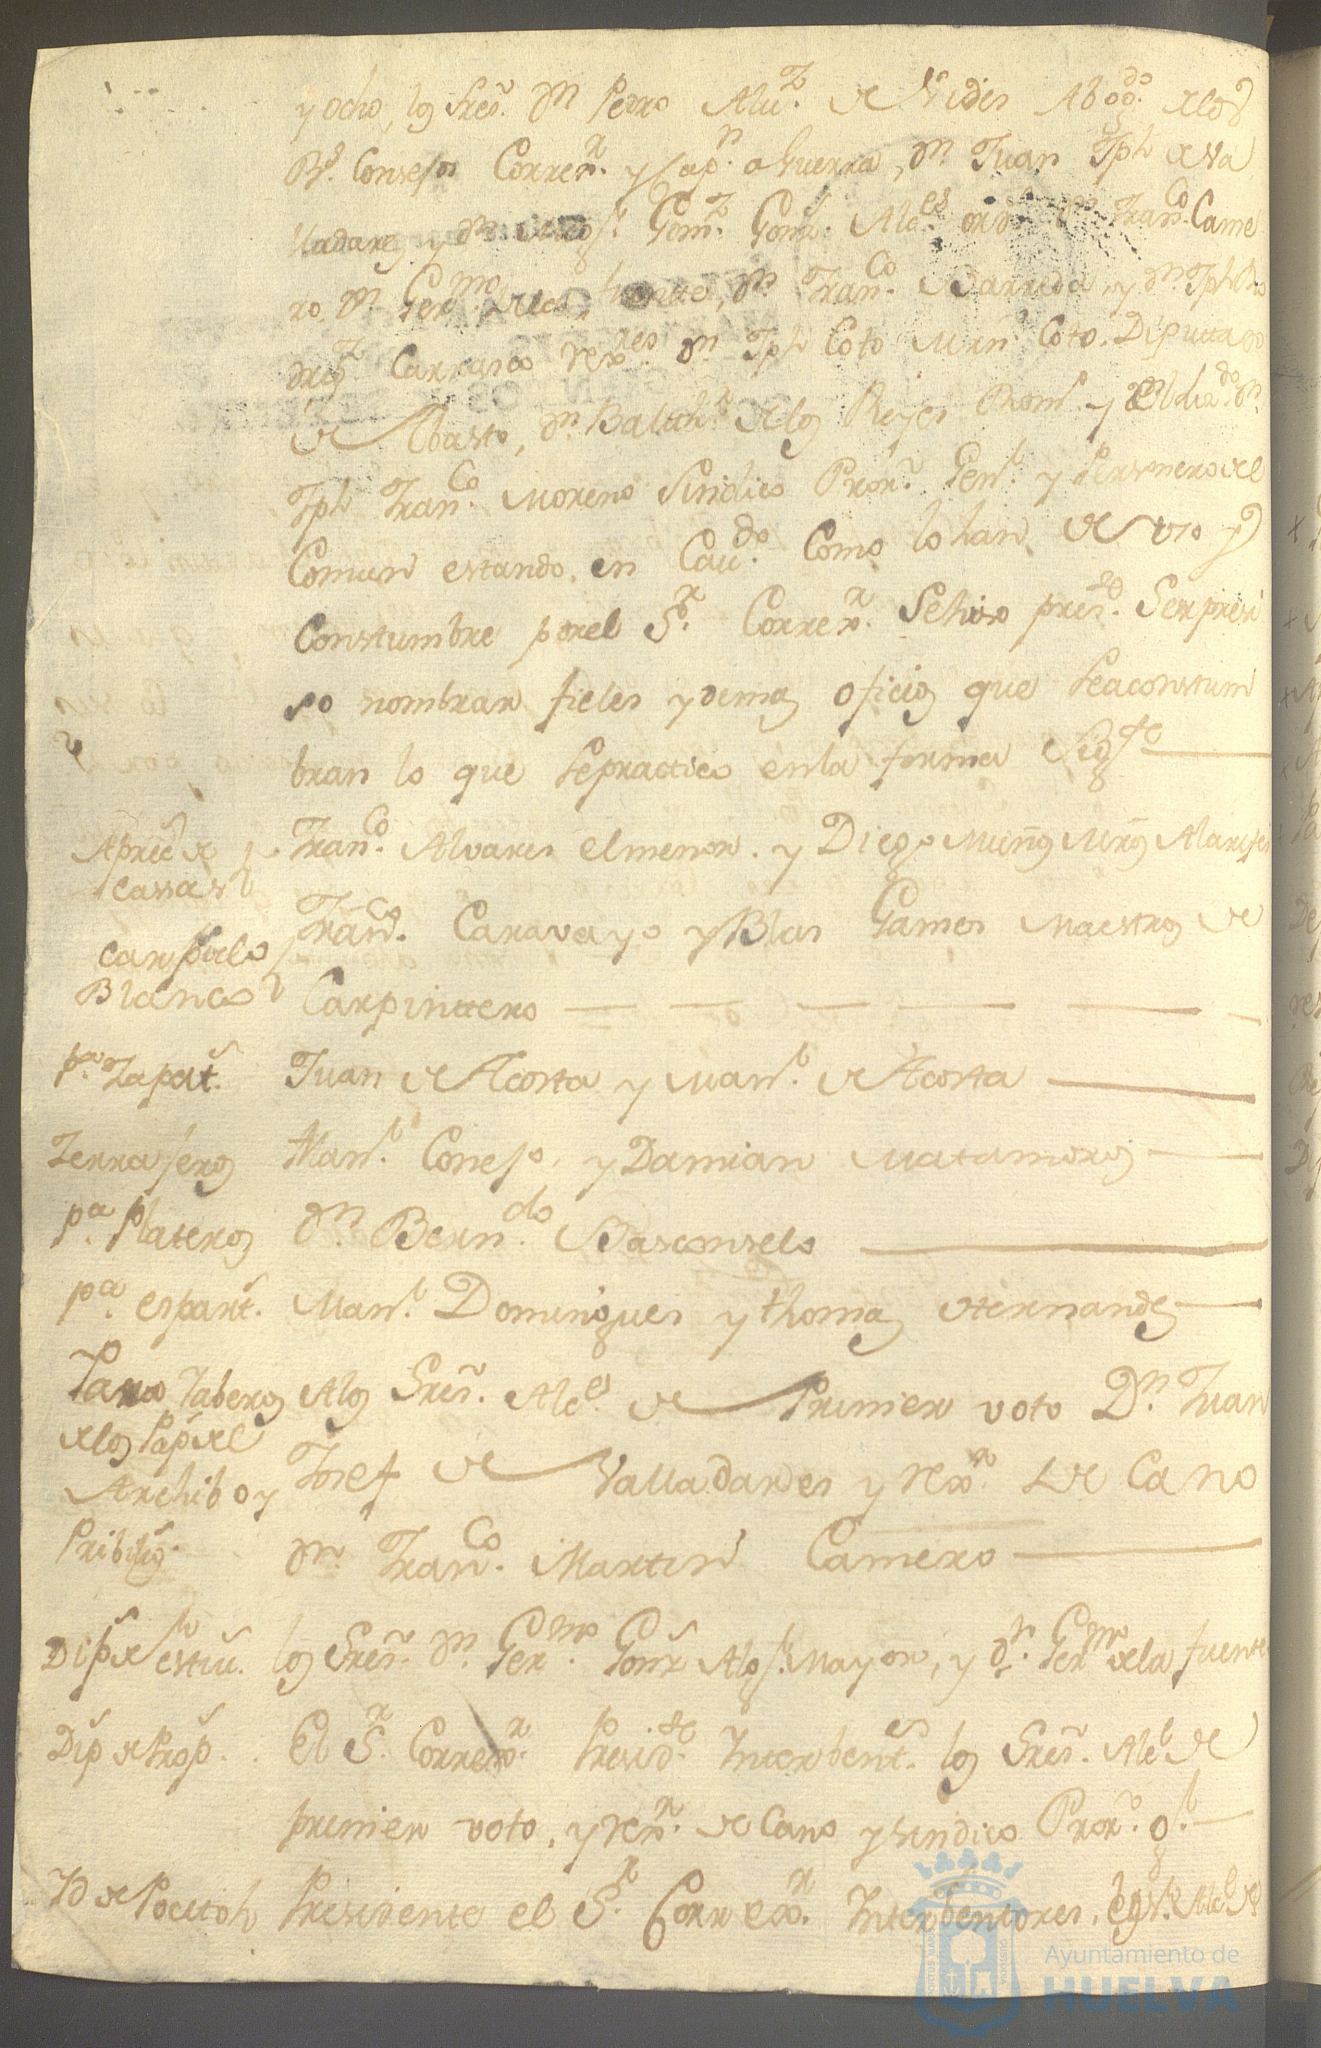 y ocho, los Sres. Dn Pedro Aluz. de Vides Abogdo. de los
Rs. Consejos Correxr. y Capn. a Guerra, Dn Juan Jph de Va
lladares y Dn Gomz. Alces. ordi Dn Franco. Came
ro, Dn Germo. de la fuente, Dn Franco. Barreda, y Dn Jph Ro
drigz Carrasco rexres Dn Jph Coto Mrn Coto. Diputado
de Abasto, Dn Balthr de los Reyes y Dn
Jph Franco. Moreno Sindico Pror. Genl. y Personero del
Comun estando en Caudo. Como lo han de uso y
Constumbre por el Sr. Correxr. Se hiso preste. Ser presi
so nombrar fieles y demas oficios que Se aconstum
bran lo que Se practico en la forma Sigte
Apreĉ de Casas Franco. Alvares el menor y Diego Muños Mrñ Alarifes
Carp. de lo Blanco Franco. Caravayo y Blas Games Maestros de
Carpintero
pa. Zapat. Juan de Acosta y Manl. de Acosta
Zerrajeros Manl. Conejo y Damian Matamoros
pa. plateros Dn. Berndo. Basconselo
pa. espart. Manl. Domingues y thomas Hernandes
Para Taberos A los Sres. Alces. de Primer voto Dn. Juan
de los Pap. del
Archibo y Josef de Valladares y rexor. de Cano
Pribilejs. Dn. Franco. Martin Camero
Dip. de estiu. los Sres. Dn. Germo. Gonz Alg. Mayor, y Dn. Germo de la fuente
Dip de Prop. El Sr. Correxr. Presidte. Interbents. los Sres. Alcs. de
primer voto, y rexr. de Cano y Sindico Pror. Gl.
Yd de Pocitoh Presidente el Sr. Correxr. Interbentores, los Alcs de
Ayuntamiento de
HUELVA